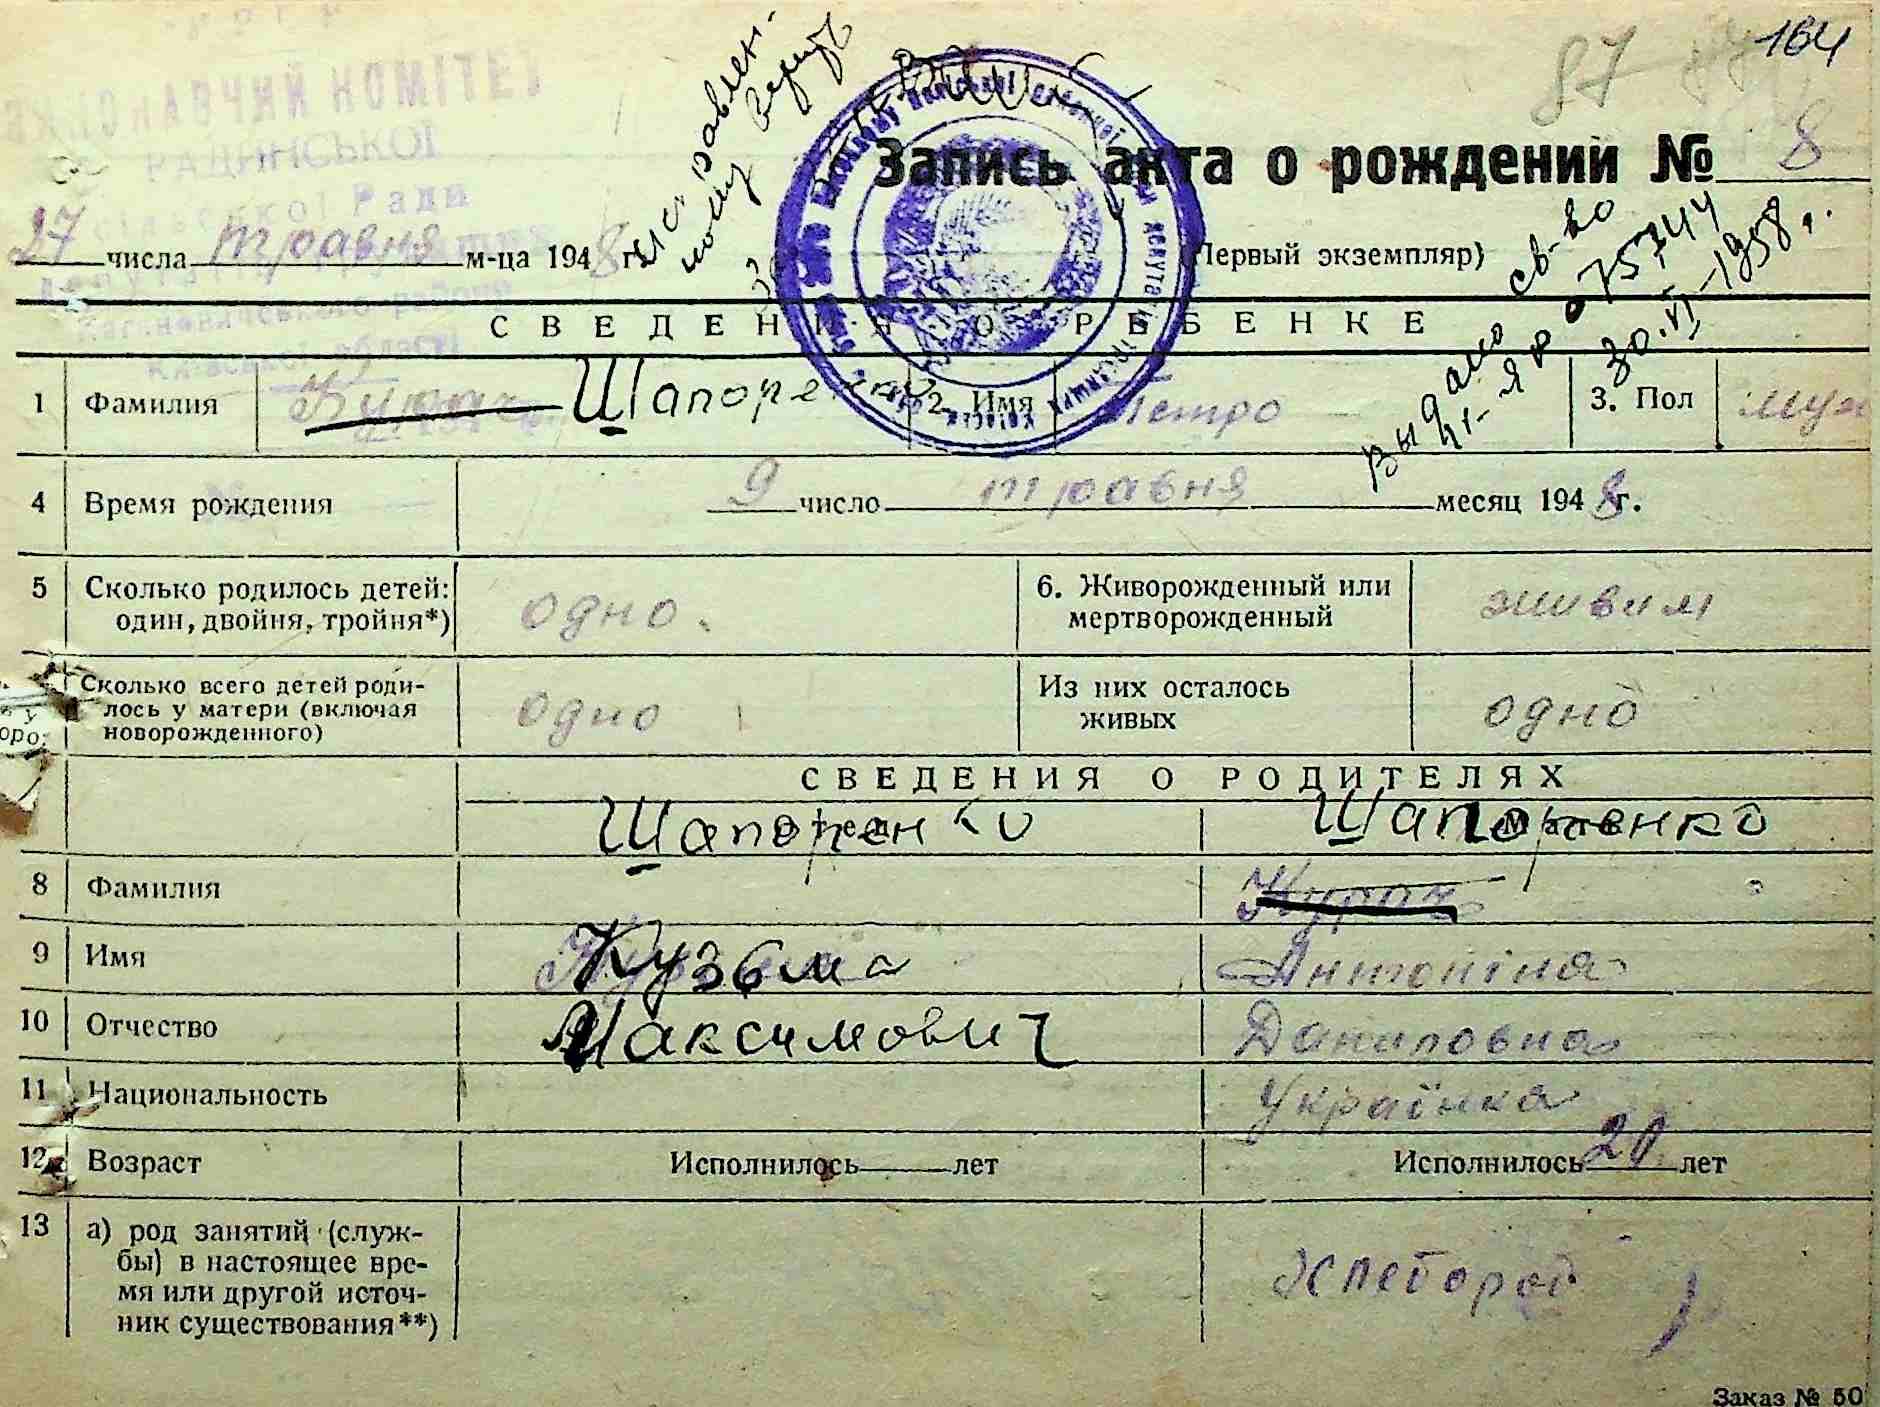 164
87
ВИКОНАВЧИЙ КОМІТЕТ
РАДИНСЬКОЇ
сільської Ради
Кагановичського району
Київської області
Запись акта о рождении № 8
27 числа травня м-ца 1948 г.
(Первый экземпляр)
Исправлен-
ному верить
Выдано св-во
075744
30.VI-1958 г.
СВЕДЕНИЯ О РЕБЕНКЕ
1 Фамилия Шапоренко 2. Имя Петро 3. Пол муж
4 Время рождения 9 число травня месяц 1948 г.
5 Сколько родилось детей: один, двойня, тройня*) одно. 6. Живорожденный или мертворожденный живим
Сколько всего детей роди-
лось у матери (включая
новорожденного) одно Из них осталось живых одно
СВЕДЕНИЯ О РОДИТЕЛЯХ
Шапоренко Шапоренко
8 Фамилия
9 Имя Кузьма Антоніна
10 Отчество Максимович Даниловна
11 Национальность Українка
12 Возраст Исполнилось лет Исполнилось 20 лет
13 а) род занятий (служ-
бы) в настоящее вре-
мя или другой источ-
ник существования**) Хлебороб
Заказ № 50